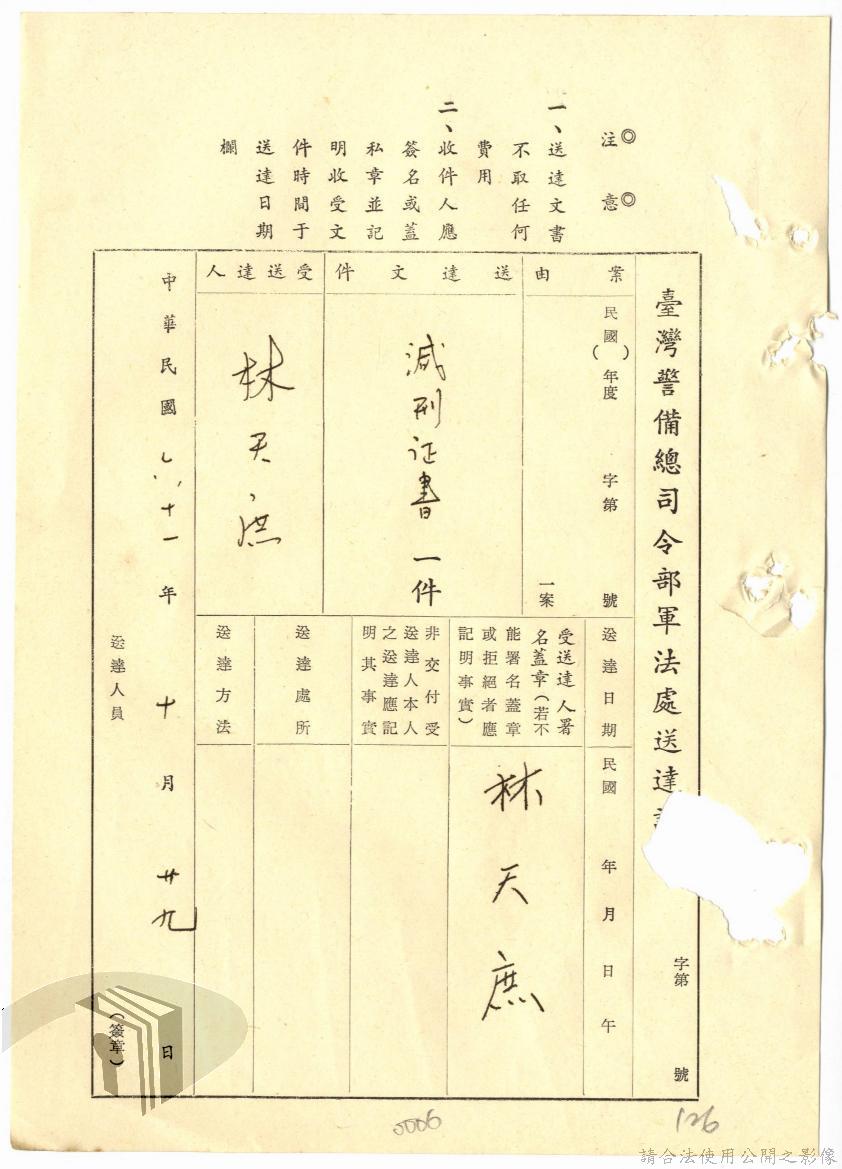 臺灣警備總司令部軍法處送達
字第 號
案由
民國( )年度 字第 號
一案
送達文件
減刑证書一件
受送達人
林天庶
送達日期
民國 年 月 日 午
受送達人署
名蓋章(若不
能署名蓋章
或拒絕者應
記明事實)
林天庶
非交付受
送達人本人
之送達應記
明其事實
送達處所
送達方法
中華民國六十一年十月廿九日
送達人員 (簽章)
◎注 ◎意
一、送達文書
不取任何
費用
二、收件人應
簽名或蓋
私章並記
明收受文
件時間于
送達日期
欄
0006
126
請合法使用公開之影像